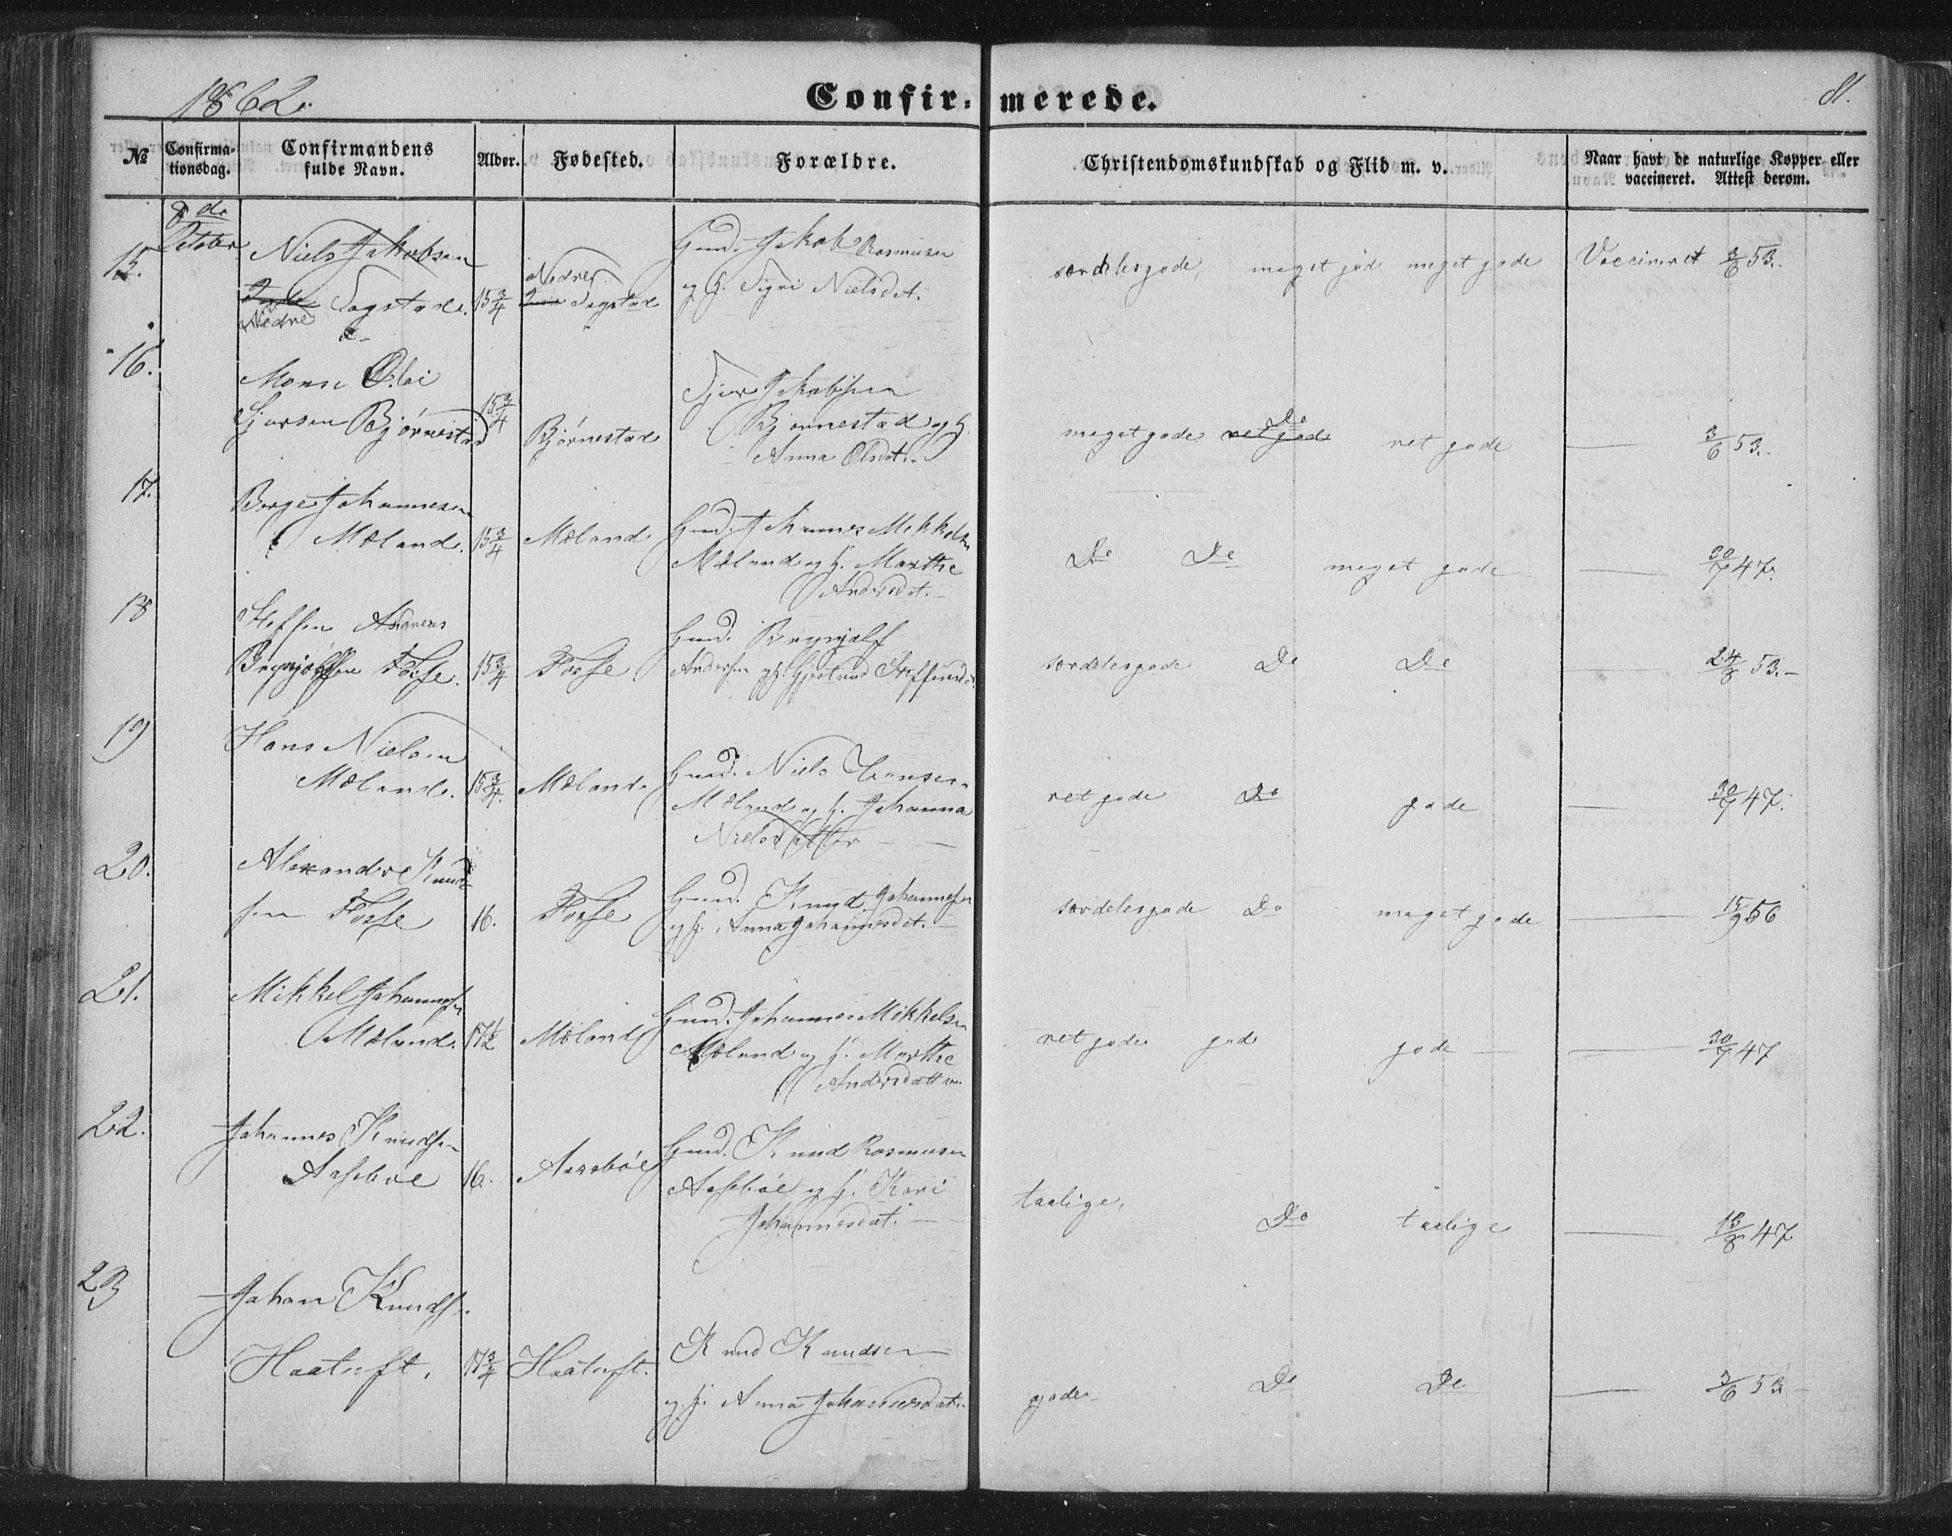 1862.
Confir- merede.
81.
№
Confirma-
tionsdag.
Confirmandens
fulde Navn.
Alder.
Fødested.
Forældre.
Christendomskundskab og Flid m. v.
Naar havt de naturlige Kopper eller
vaccineret. Attest derom.
October
15.
Niels Jakobsen
Nedre Sagstad.
15 3/4
Nedre
Sagstad
Gmd. Jakob Rasmusen
og H. Sigri Nielsdat.
særdelesgode, meget god meget gode
Vaccineret 3/6 53.
16.
Mons Olai
Sjursen Bjørnestad
15 3/4
Bjørnestad
Sjur Jakobsen
Bjørnestad og H.
Anna Olsdat.
meget gode ret gode Do ret gode
— 3/6 53.
17.
Børge Johannesen
Mæland.
15 3/4
Mæland
Gmd. Johannes Mikkelsen
Mæland og H. Marthe
Andersdat.
Do Do meget gode
— 30/7 47.
18
Steffen Andreas
Brynjolfsen Fosse.
15 3/4
Fosse
Gmd. Brynjolf
Andersen og H. Steffensdat
særdelesgode Do Do
— 24/8 53.
19
Hans Nielsen
Mæland.
15 3/4
Mæland.
Gmd. Niels Hansen
Mæland og H. Johanna
Nielsdatter
ret gode Do gode
— 30/7 47.
20.
Alexander Knud-
sen Fosse
16.
Fosse
Gmd. Knud Johannesen
og H. Anna Johannesdat.
særdelesgode Do meget gode
— 15/9 56
21.
Mikkel Johannesen
Mæland.
17 1/2
Mæland
Gmd. Johannes Mikkelsen
Mæland og H. Marthe
Andersdatter.
ret gode god gode
— 30/7 47
22.
Johannes Knudsen
Aasebøe
16.
Aasebøe
Gmd. Knud Rasmusen
Aasebøe og H. Kari
Johannesdat.
taalige, Do taalige
— 13/8 47
23
Johan Knuds.
Haatuft.
17 3/4
Haatuft.
Knud Knudsen
og H. Anna Johannesdat.
gode Do Do
— 3/6 53